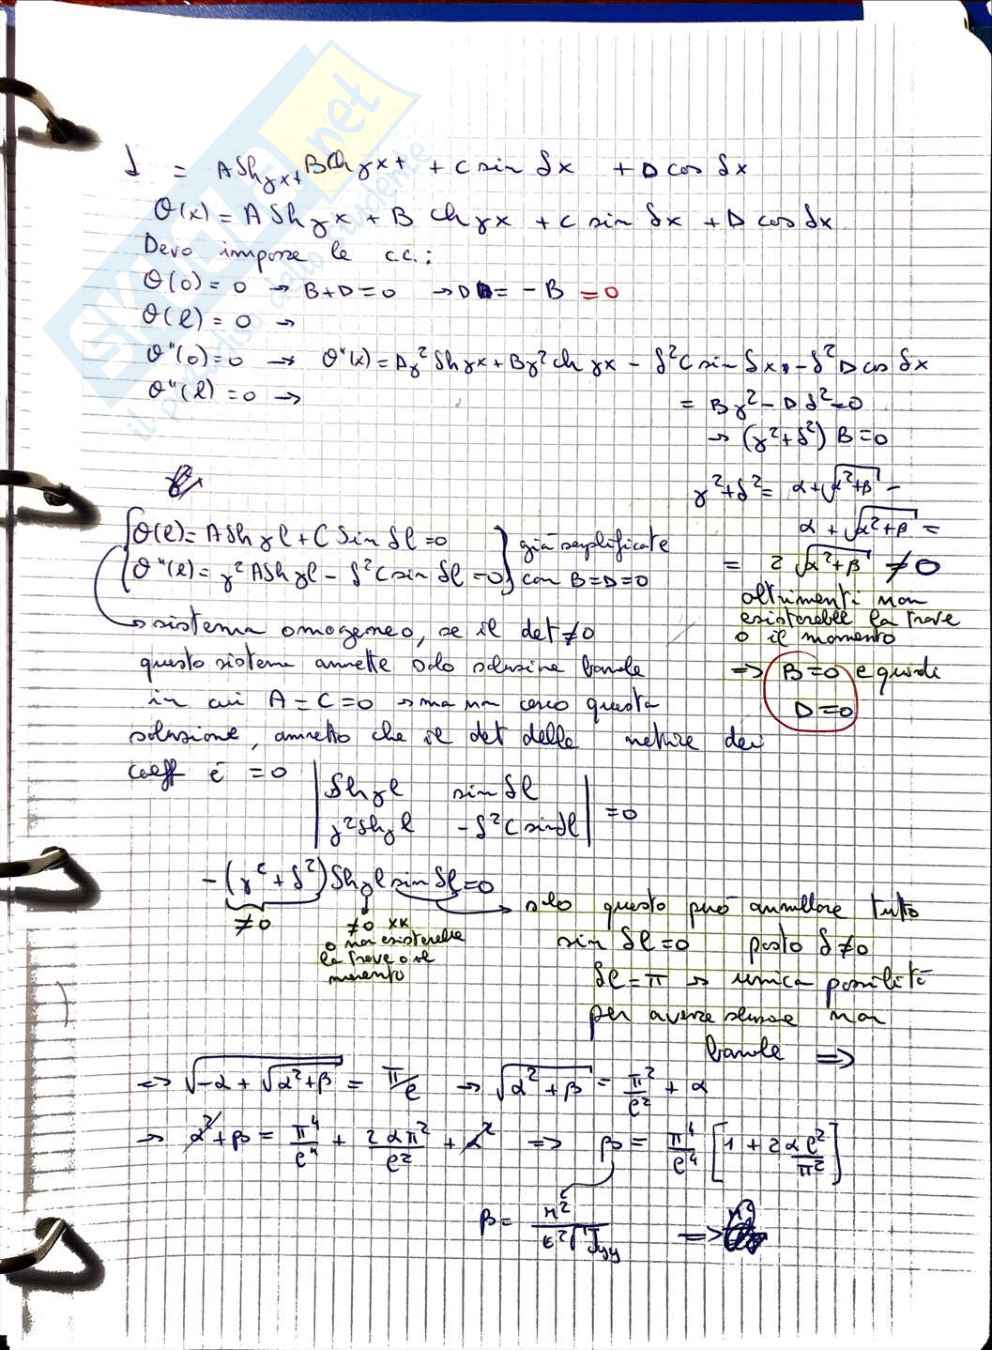 = A Sh γx + B Ch γx + + C sin δx + D cos δx
θ(x) = A Sh γx + B Ch γx + C sin δx + D cos δx
Devo imporre le c.c.:
θ(0) = 0 → B + D = 0 → D = - B = 0
θ(l) = 0 →
θ''(0) = 0 → θ''(x) = Aγ² Sh γx + Bγ² ch γx - δ² C sin δx - δ² D cos δx
θ''(l) = 0 →
= Bγ² - Dδ² = 0
→ (γ² + δ²) B = 0
γ² + δ² = α + √(α² + β) -
α + √(α² + β) =
= 2 √(α² + β) ≠ 0
altrimenti non
esisterebbe la trave
o il momento
⇒ B = 0 e quindi
D = 0
θ(l) = A Sh γl + C Sin δl = 0
θ''(l) = γ² A Sh γl - δ² C sin δl = 0
già semplificate
con B = D = 0
→ sistema omogeneo, se il det ≠ 0
questo sistema ammette solo soluzione banale
in cui A = C = 0 → ma non cerco questa
soluzione, ammetto che il det della matrice dei
coeff è = 0
| Sh γl sin δl |
| γ² Sh γl - δ² C sin δl | = 0
- (γ² + δ²) Sh γl sin δl = 0
≠ 0
≠ 0 xk
o non esisterebbe
la trave o il
momento
→ solo questo può annullare tutto
sin δl = 0 posto δ ≠ 0
δl = π → unica possibilità
per avere soluzione non
banale ⇒
⇒ √(-α + √(α² + β)) = π/l → √(α² + β) = π²/l² + α
→ α² + β = π⁴/l⁴ + 2απ²/l² + α² ⇒ β = π⁴/l⁴ [1 + 2αl²/π²]
β = M²/(E² Γ Jyy) ⇒
SKUOLA.net
il paradiso dello studente